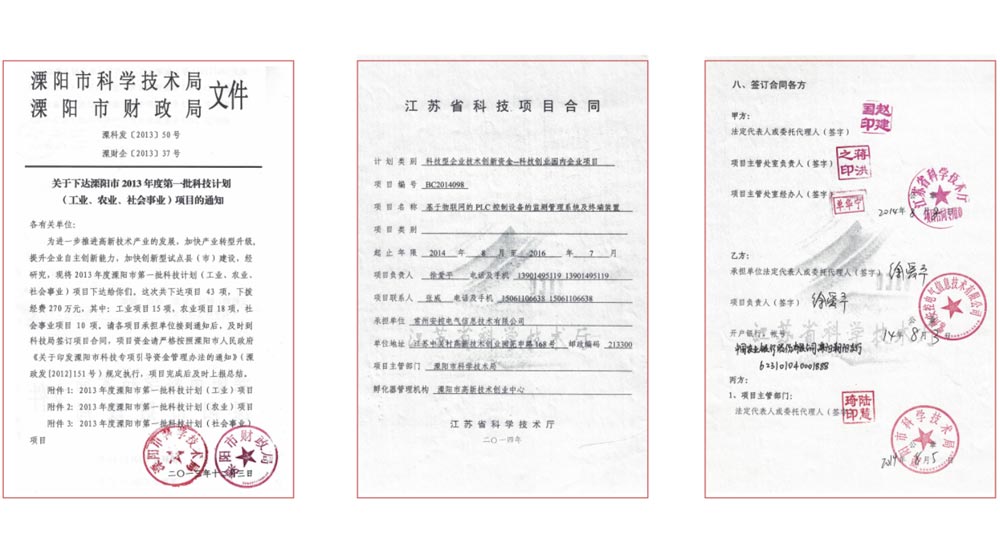 溧阳市科学技术局
溧阳市财政局
文件
溧科发〔2013〕50号
溧财企〔2013〕37号
关于下达溧阳市2013年度第一批科技计划
（工业、农业、社会事业）项目的通知
各有关单位：
为进一步推进高新技术产业的发展，加快产业转型升级，
提升企业自主创新能力，加快创新型试点县（市）建设，经
研究，现将2013年度溧阳市第一批科技计划（工业、农业、
社会事业）项目下达给你们。这次共下达项目43项，下拨
经费270万元，其中：工业项目15项，农业项目18项，社
会事业项目10项。请各项目承担单位接到通知后，及时到
科技局签订项目合同，项目资金请严格按照溧阳市人民政府
《关于印发溧阳市科技专项引导资金管理办法的通知》（溧
政发[2012]151号）规定执行，项目完成后及时上报总结。
附件1：2013年度溧阳市第一批科技计划（工业）项目
附件2：2013年度溧阳市第一批科技计划（农业）项目
附件3：2013年度溧阳市第一批科技计划（社会事业）
项目
溧阳市科学技术局
溧阳市财政局
江苏省科技项目合同
计划类别 科技型企业技术创新资金--科技创业园内企业项目
项目编号 BC2014098
项目名称 基于物联网的PLC控制设备的监测管理系统及终端装置
项目类别
起止年限 2014 年 8 月至 2016 年 7 月
项目负责人 徐爱平 电话及手机 13901495119 13901495119
项目联系人 张威 电话及手机 15061106638 15061106638
承担单位 常州安控电气信息技术有限公司
单位地址 江苏中关村高新技术创业园苑中路168号 邮政编码 213300
项目主管部门 溧阳市科学技术局
孵化器管理机构 溧阳市高新技术创业中心
江苏省科学技术厅
江苏省科学技术厅
二〇一四年
八、签订合同各方
甲方：
法定代表人或委托代理人（签字）
赵建国印
项目主管处室负责人（签字）
蒋洪之印
项目主管处室经办人（签字）
单华宁
江苏省科学技术厅
2014年 8月
乙方：
承担单位法定代表人或委托代理人（签字） 徐爱平
项目负责人（签字） 徐爱平
安控电气信息技术有限公司
14 8月5
开户银行、帐号
江苏省科学技术厅
丙方：
1、项目主管部门：
法定代表人或委托代理人（签字）
陆慧琦印
溧阳市科学技术局
2014 8月5